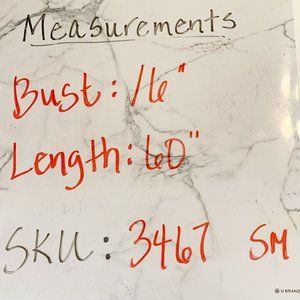 Measurements
Bust: 16"
Length: 60"
SKU: 3467 SM
U BRAND